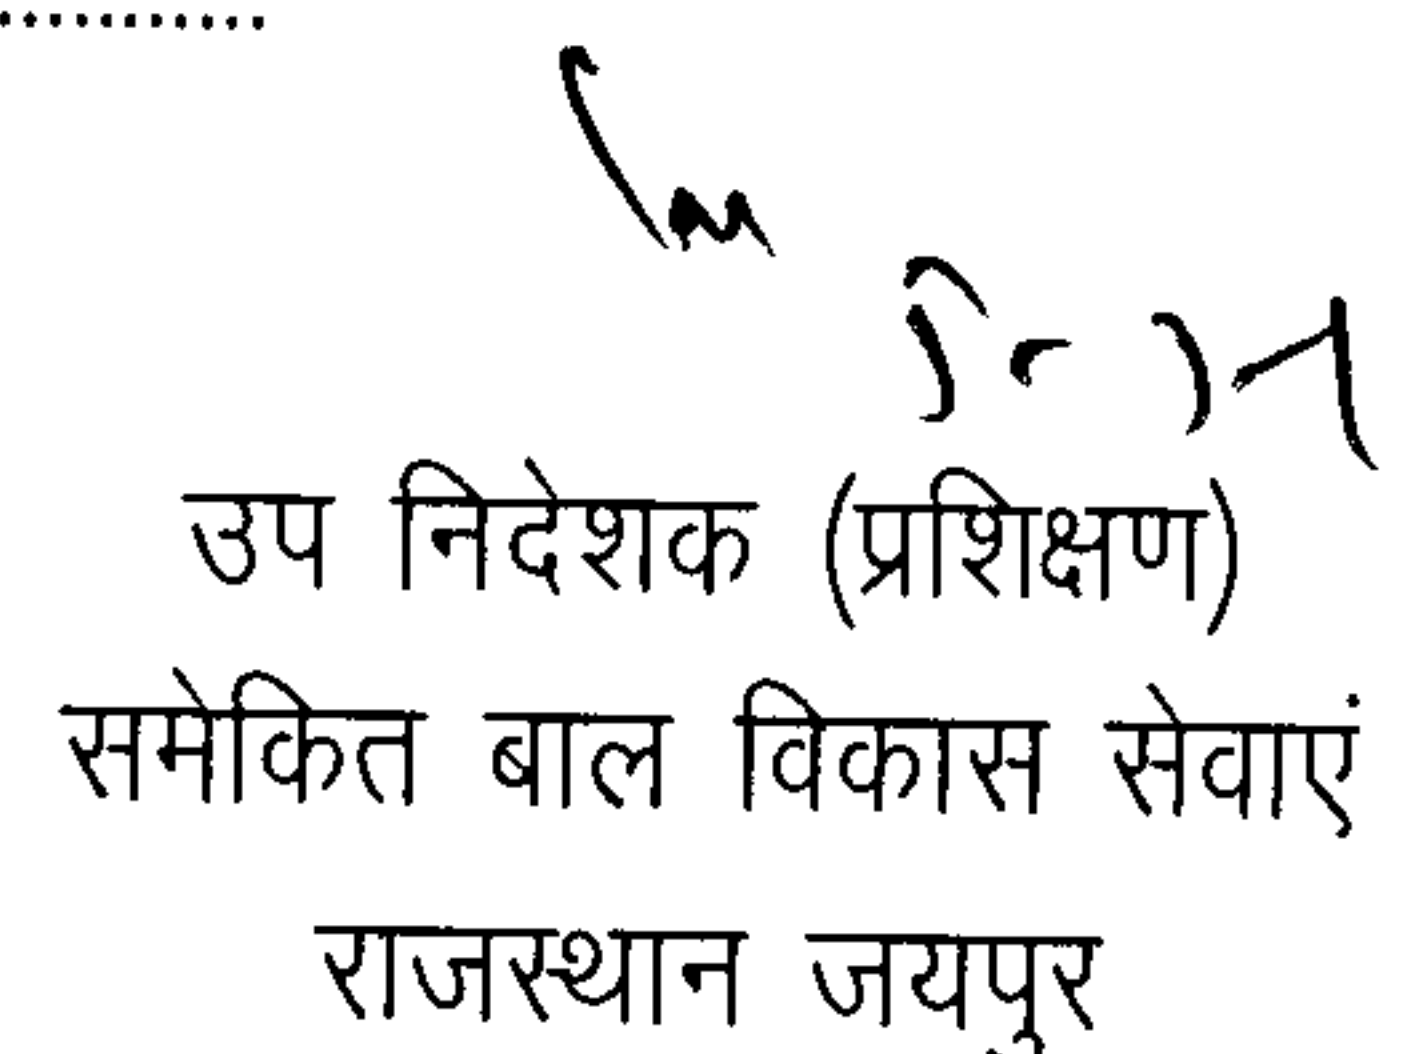 उप निदेशक (प्रशिक्षण)
समेकित बाल विकास सेवाएं
राजस्थान जयपुर